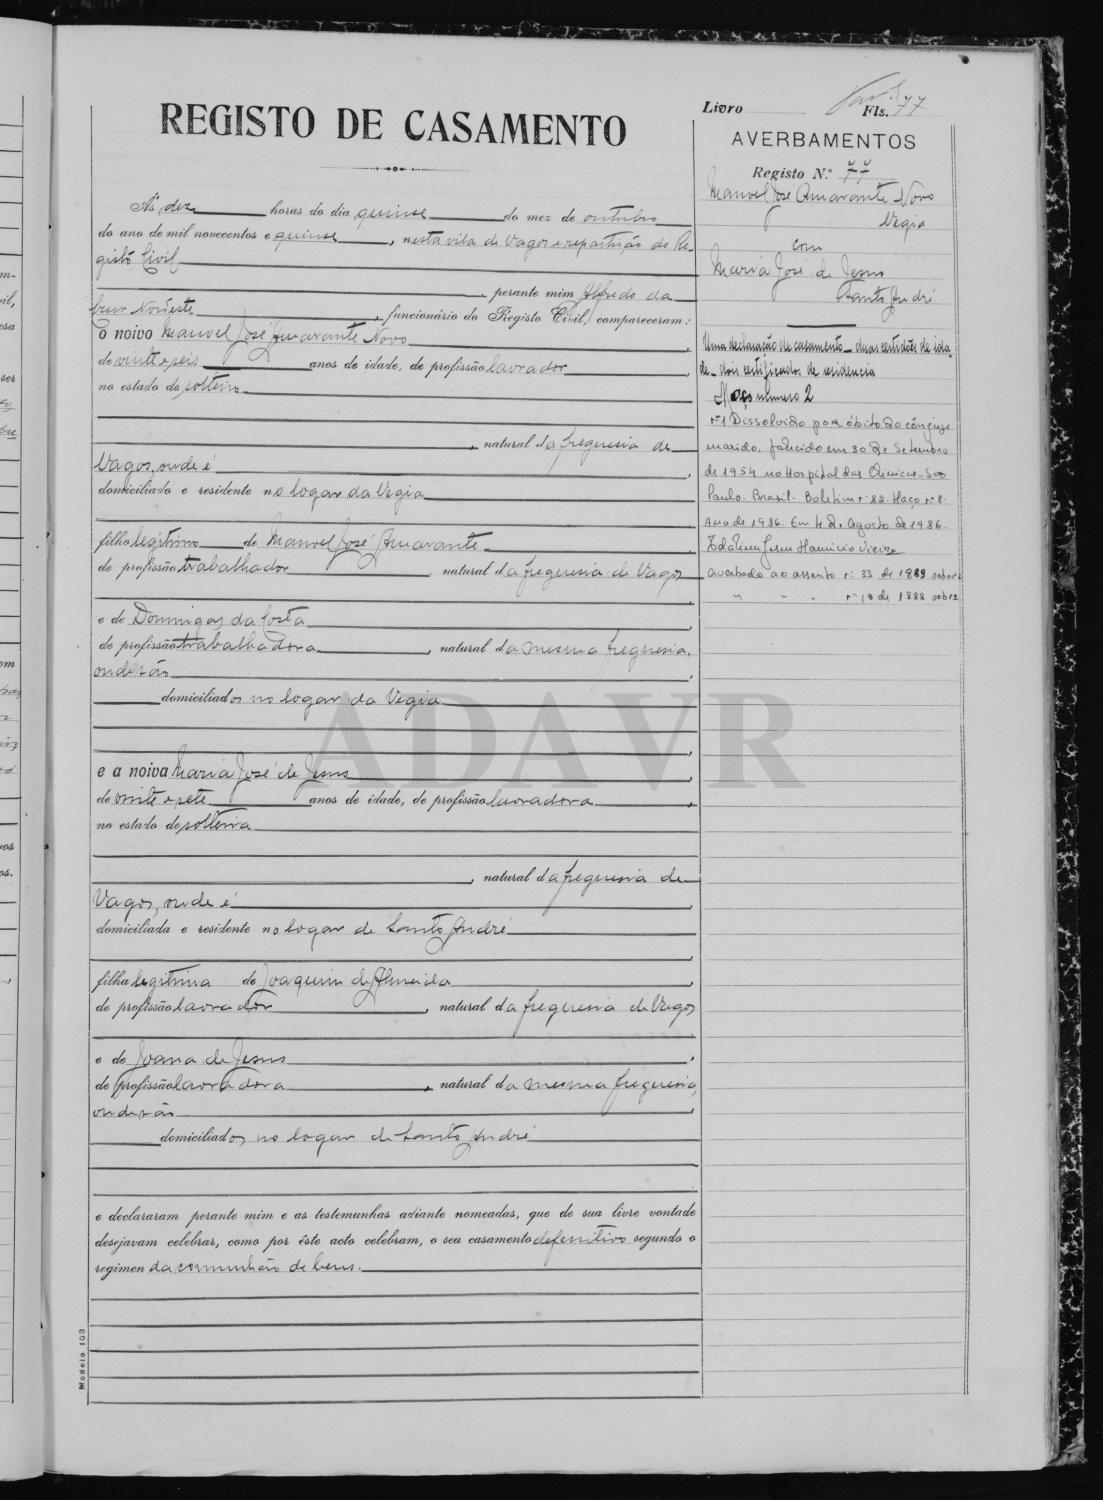 REGISTO DE CASAMENTO
Livro
Fls. 77
AVERBAMENTOS
Registo N.º 77
Manoel José Amarante Novo
Vegia
com
Maria José de Jesus
Santo André
Uma declaração de casamento - duas certidões de ida-
de - dois certificados de residencia
Maço número 2
nº 1 Dissolvido por óbito do cônjuge
marido, falecido em 30 de Setembro
de 1954 no Hospital das Clinicas - São
Paulo. Brasil. Boletim nº 82. Maço nº 8.
Ano de 1986. Em 4 de Agosto de 1986.
averbado ao assento nº 33 de 1889
" " " nº 18 de 1888
Ás dez horas do dia quinse do mez de outubro
do ano de mil novecentos e quinse, nesta vila de Vagos e repartição do Re-
gisto Civil
, perante mim Alfredo da
Cruz Nordeste, funcionário do Registo Civil, compareceram:
O noivo Manoel José Amarante Novo
de vinte e seis anos de idade, de profissão lavrador,
no estado de solteiro
, natural da freguesia de
Vagos, onde é
domiciliado e residente no logar da Vegia
filho legitimo de Manoel José Amarante
de profissão trabalhador, natural da freguesia de Vagos
e de Domingas da Costa
de profissão trabalhadora, natural da mesma freguesia,
onde são
domiciliados no logar da Vegia
e a noiva Maria José de Jesus
de vinte e sete anos de idade, de profissão lavradora,
no estado de solteira
, natural da freguesia de
Vagos, onde é
domiciliada e residente no logar de Santo André
filha legitima de Joaquim d'Almeida
de profissão lavrador, natural da freguesia de Vagos
e de Joana de Jesus
de profissão lavradora, natural da mesma freguesia,
onde são
domiciliados no logar de Santo André
e declararam perante mim e as testemunhas adiante nomeadas, que de sua livre vontade
desejavam celebrar, como por êste acto celebram, o seu casamento defenitivo segundo o
regimen da comunhão de bens.
Modelo 103
ADAVR